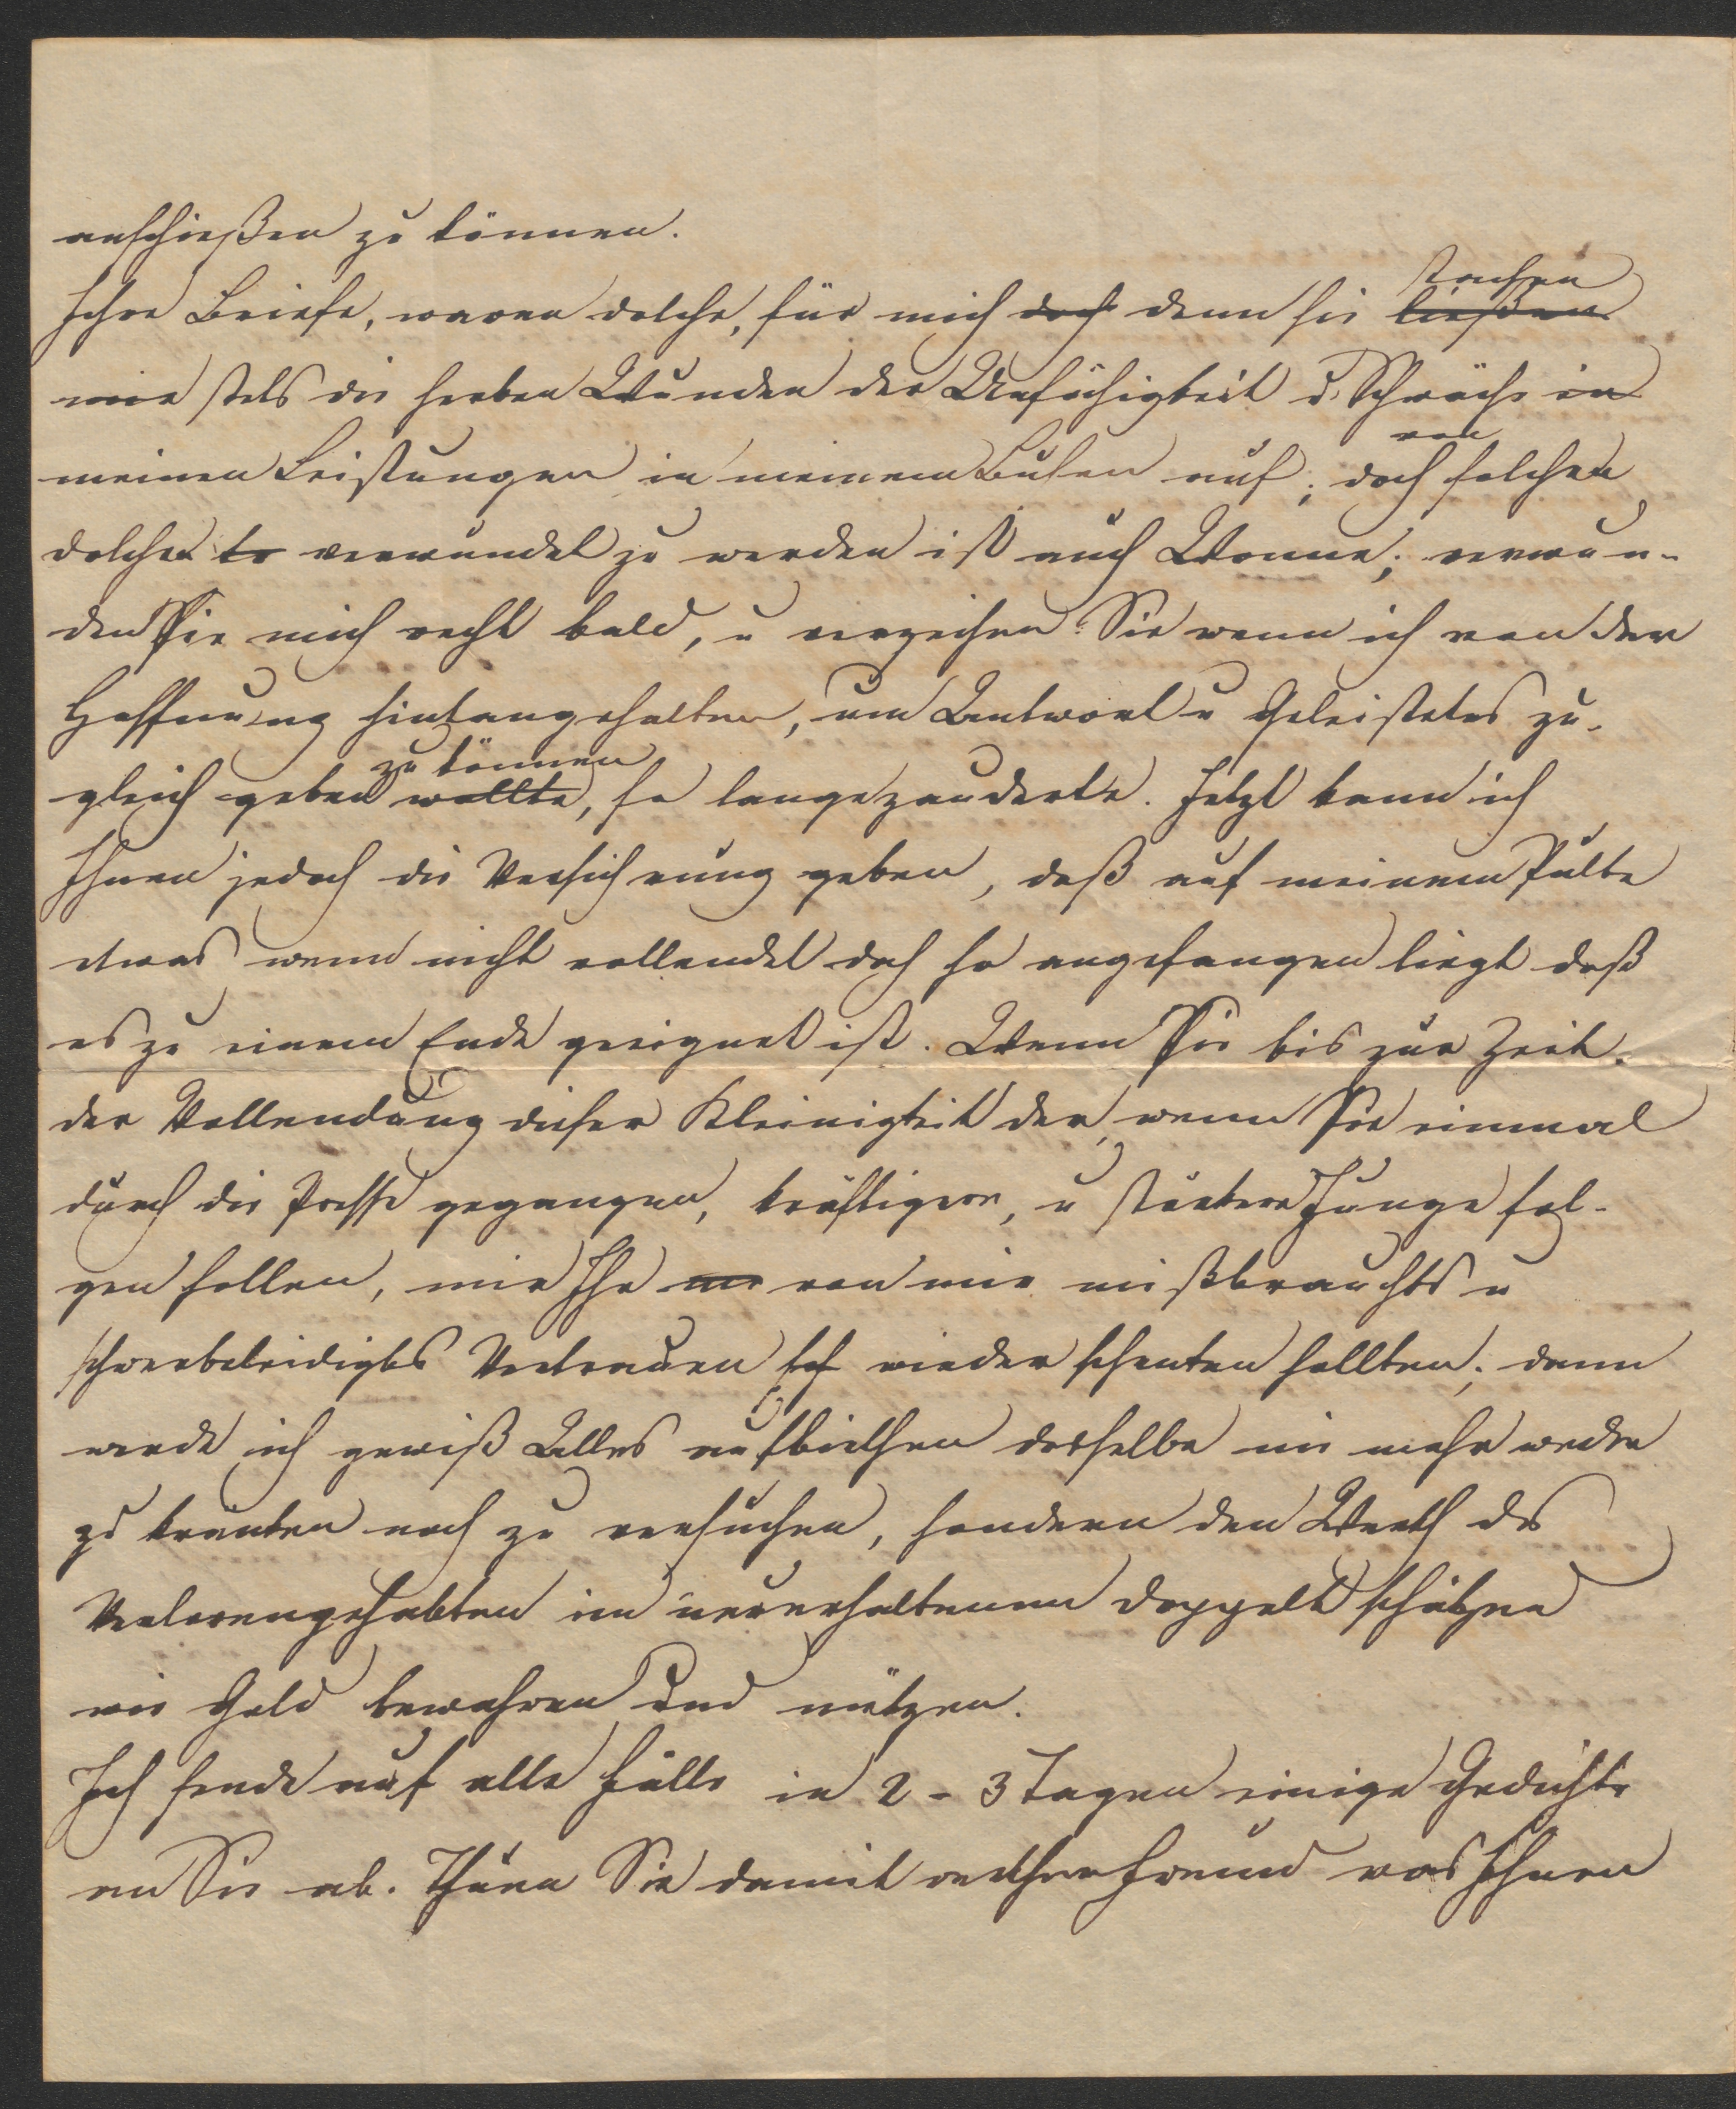 anschießen zu können.
Ihre Briefe, waren dolche, für mich doch denn sie stachen ließen
mir stets die herben Wunden der Unfähigkeit u. Schwäche in
meinen Leistungen in meinem Busen auf; doch von solchen
dolchen verwundet zu werden ist auch Wonne; verwun-
den Sie mich recht bald, u verzeihen Sie wenn ich von der
Hoffnung hintangehalten, um Antwort u Geleistetes zu-
gleich geben zu können wollte, so lange zauderte. Jetzt kann ich
Ihnen jedoch die Versicherung geben, daß auf meinem Pulte
etwas wenn nicht vollendet doch so angefangen liegt daß
es zu einem Ende geeignet ist. Wenn Sie bis zur Zeit
der Vollendung dieser Kleinigkeit der, wenn Sie einmal
durch die Presse gegangen, kräftigere, u stärkere Junge fol-
gen sollen, mir Ihr von mir mißbrauchts u
schwerbeleidigtes Vertrauen wieder schenken sollten; dann
werde ich gewiß Alles aufbiethen dasselbe nie mehr weder
zu kränken noch zu versuchen, sondern den Werth des
Verlorengehabten im neuerhaltenen doppelt schätzen
wie Gold bewahren und nützen.
Ich sende auf alle Fälle in 2 - 3 Tagen einige Gedichte
an Sie ab. Thuen Sie damit werther Freund was Ihnen